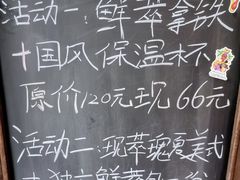 活动一:鲜萃拿铁
十国风保温杯
原价120元现66元
活动二:现萃瑰夏美式